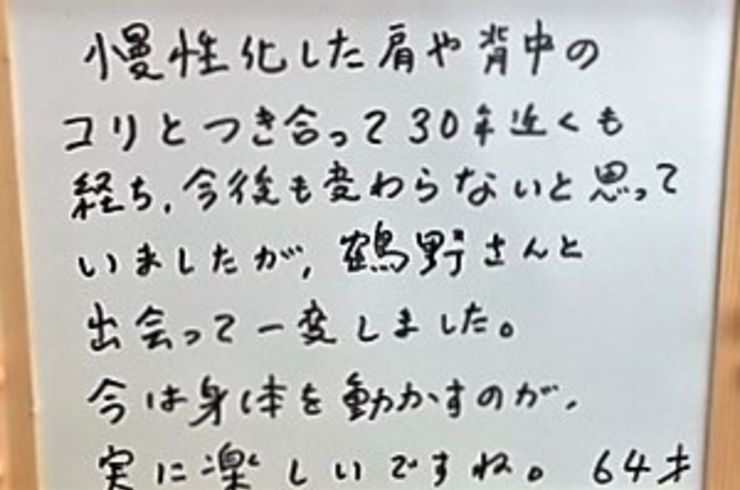 慢性化した肩や背中の
コリとつき合って30年近くも
経ち、今後も変わらないと思って
いましたが、鶴野さんと
出会って一変しました。
今は身体を動かすのが、
実に楽しいですね。 64才